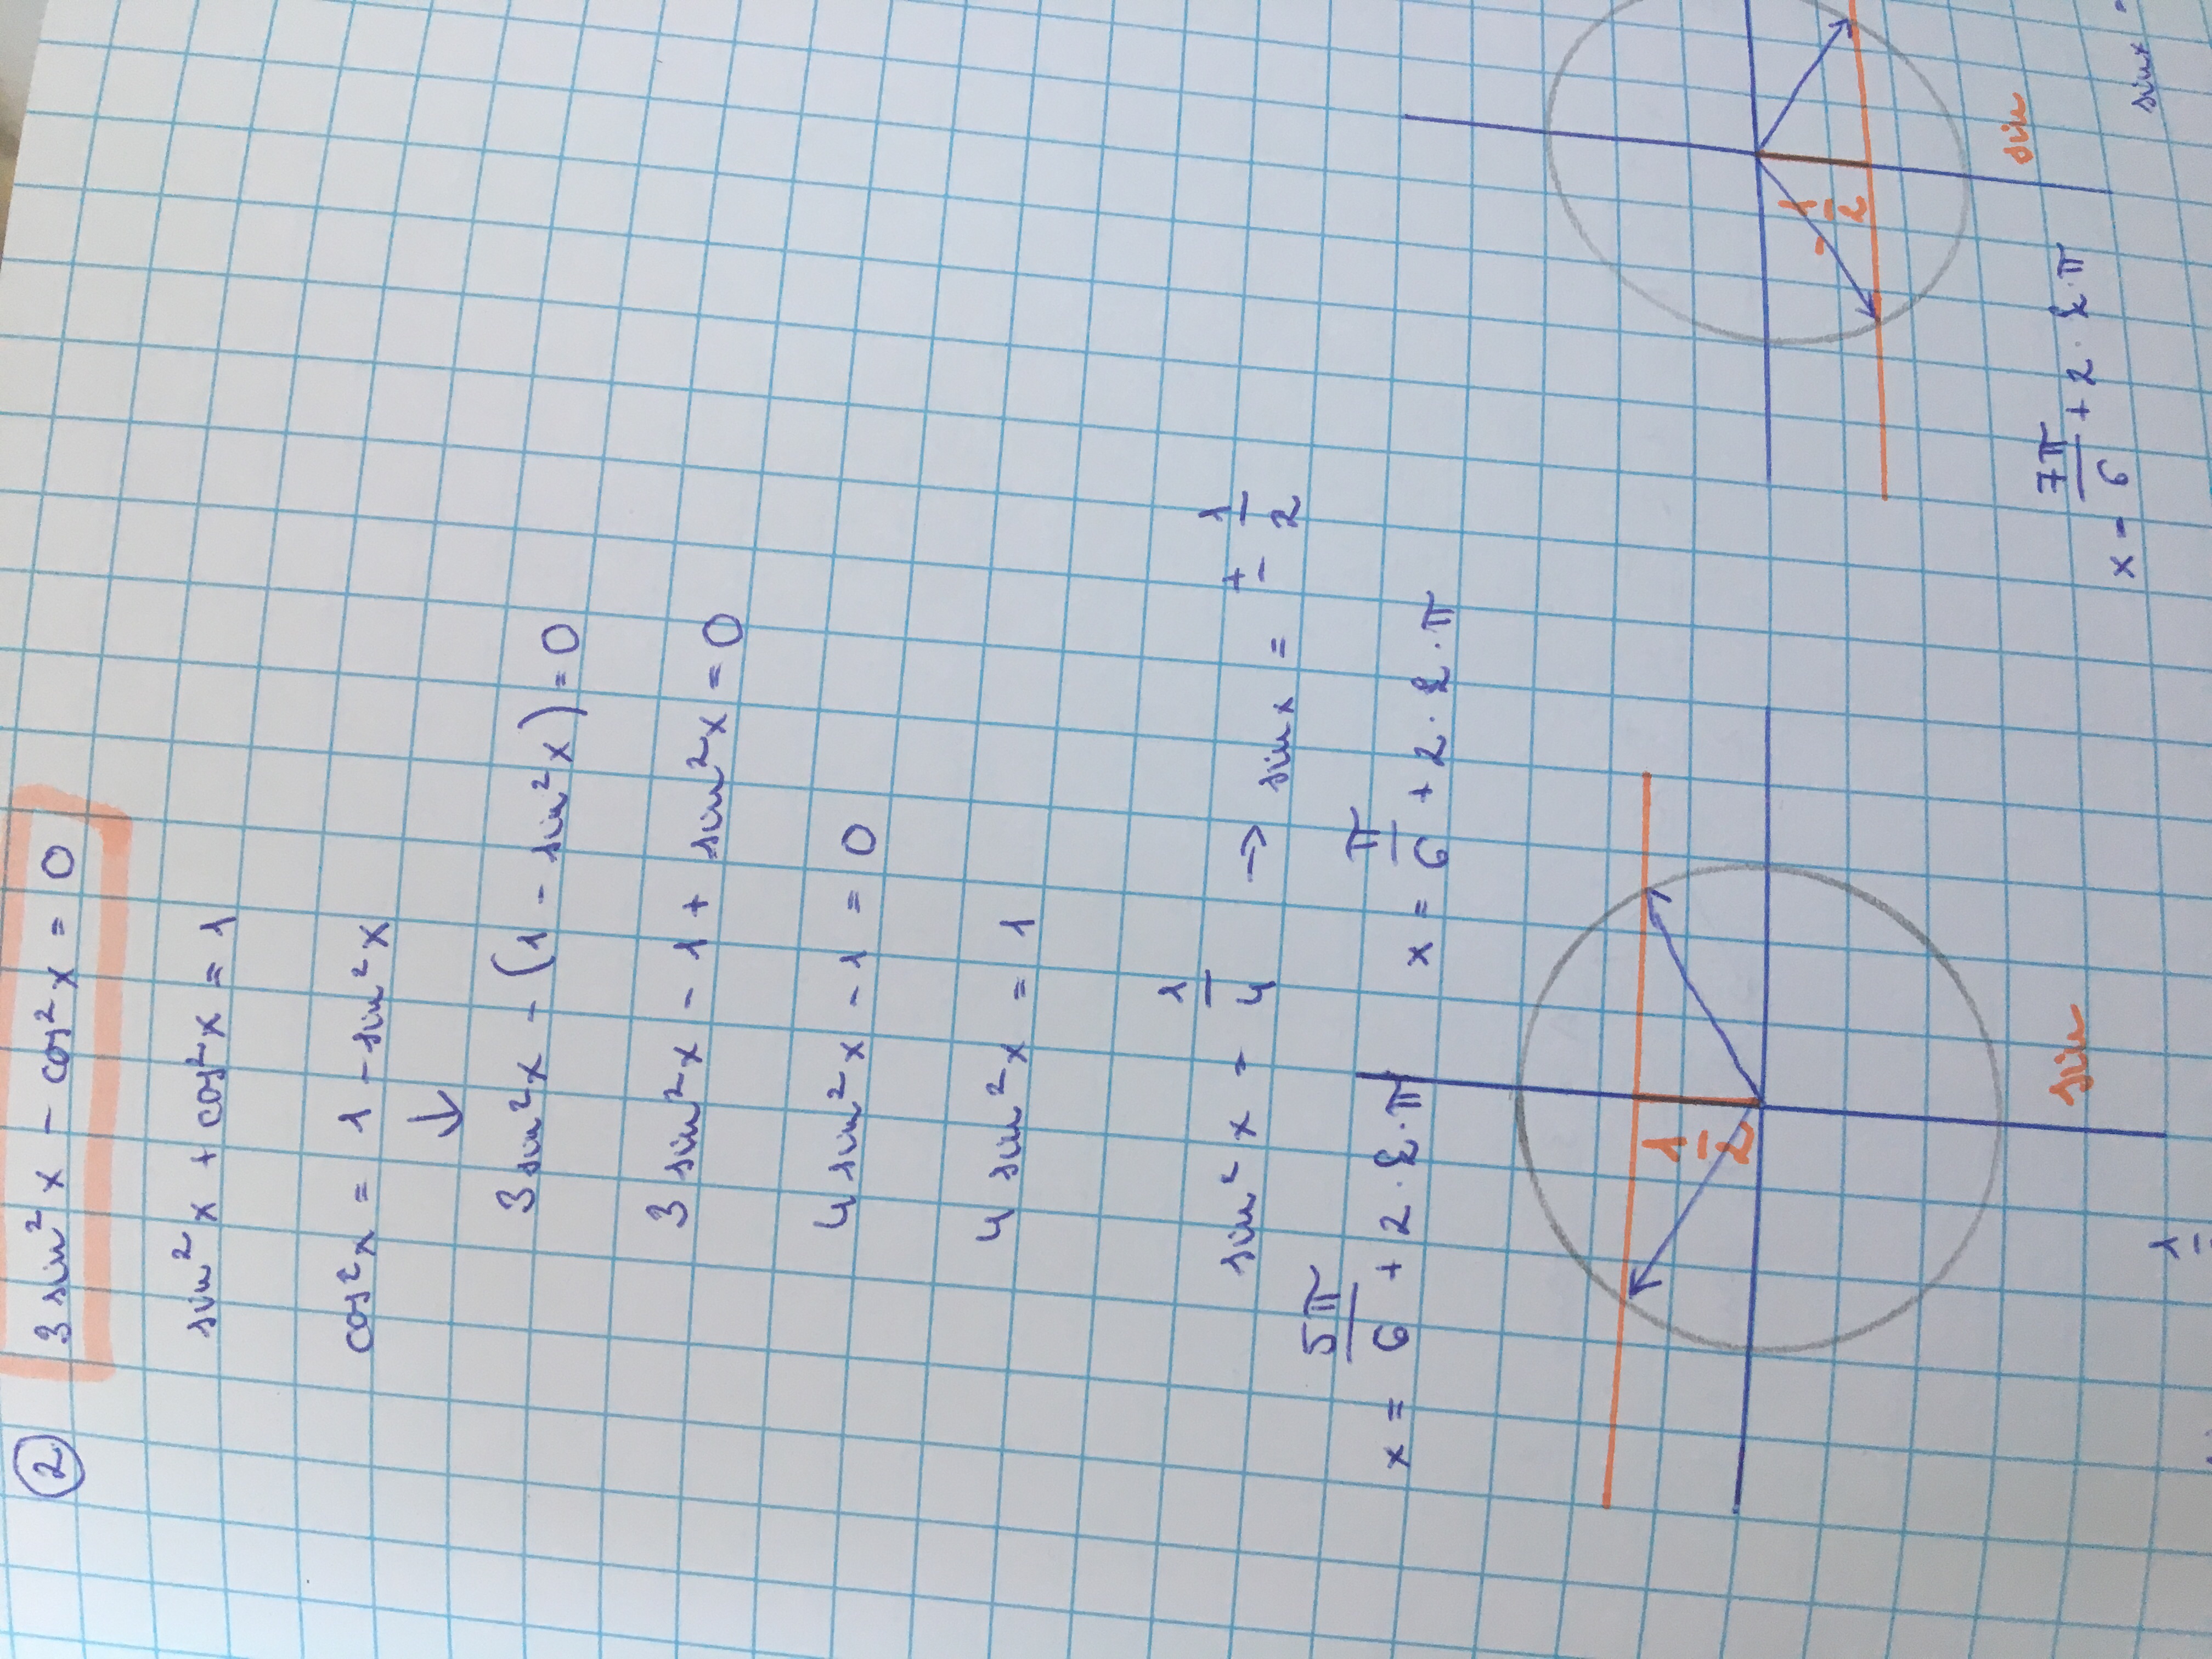 ② 3 sin²x - cos²x = 0
sin²x + cos²x = 1
cos²x = 1 - sin²x
↓
3 sin²x - (1 - sin²x) = 0
3 sin²x - 1 + sin²x = 0
4 sin²x - 1 = 0
4 sin²x = 1
sin²x = 1/4 → sin x = ± 1/2
x = 5π/6 + 2·k·π x = π/6 + 2·k·π
1/2
sin
-1/2
sin
x = 7π/6 + 2·k·π
sin x